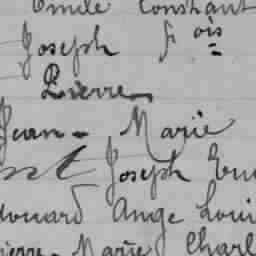 Emile Constant
Joseph fois
Pierre
Jean-Marie
Joseph
Edouard Ange Loui
Pierre-Marie Charl